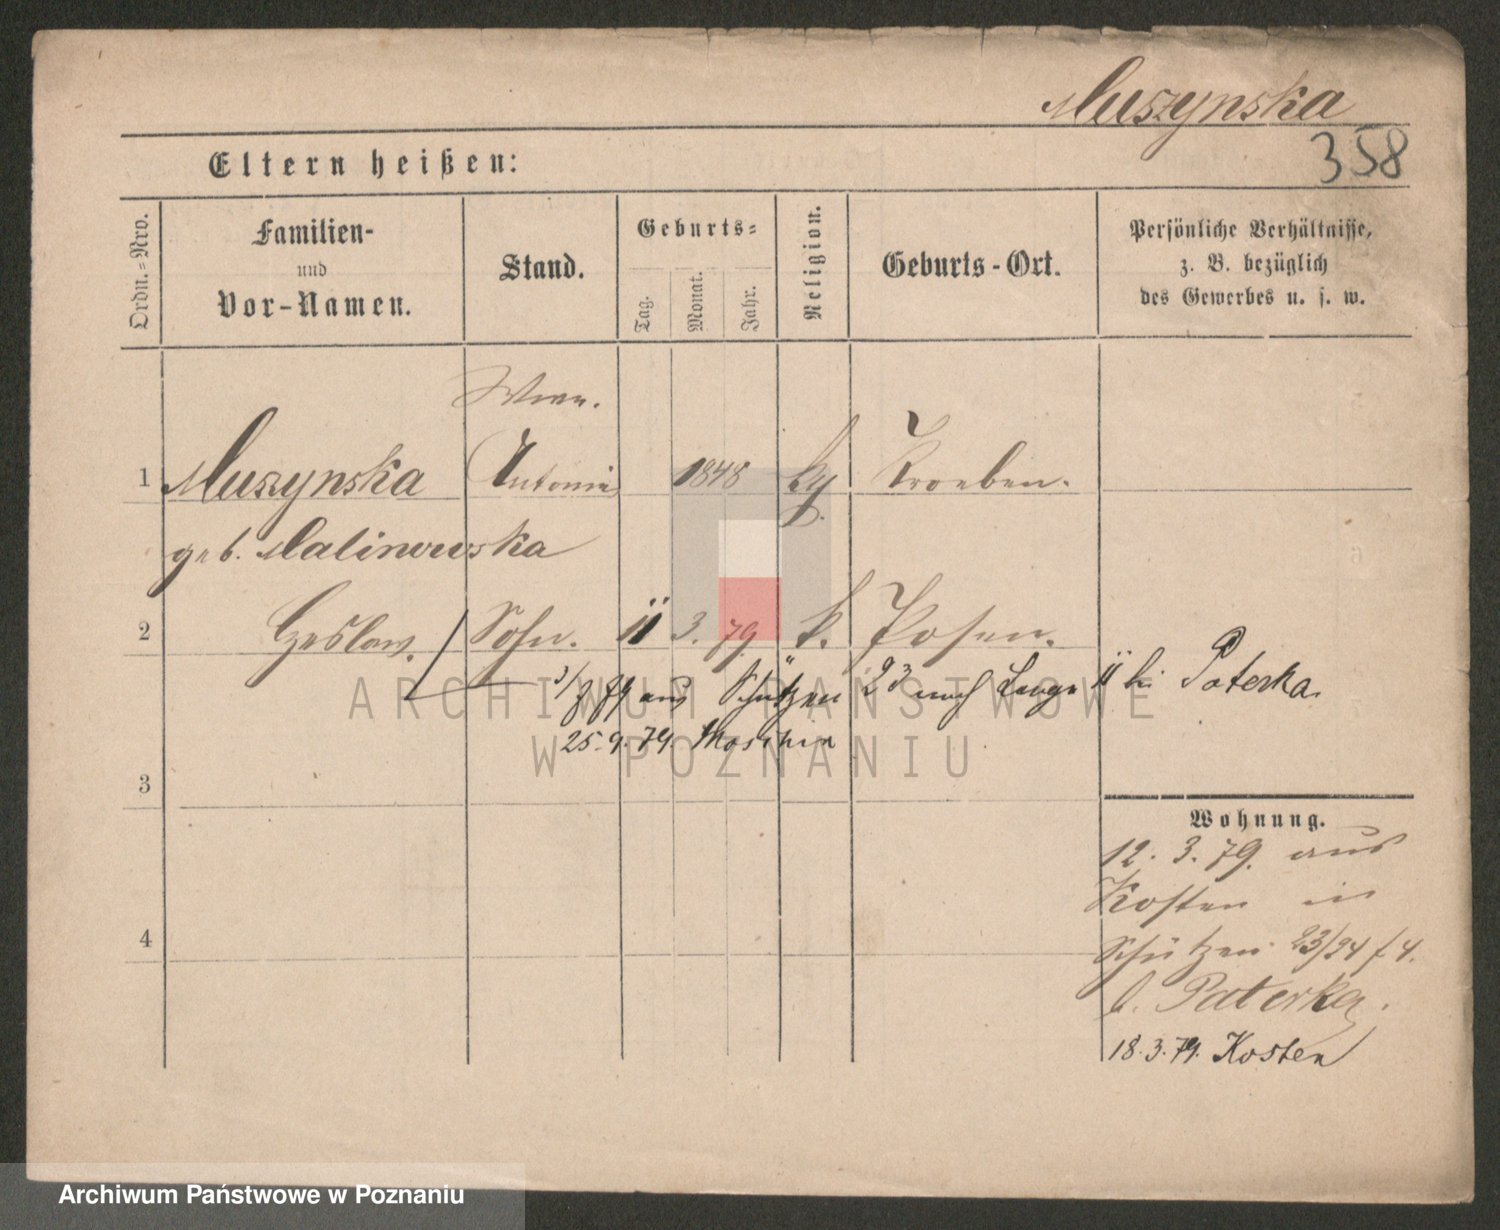 Muszynska
358
Eltern heißen:
Ordn.=Nro.
Familien-
und
Vor-Namen.
Stand.
Geburts=
Tag.
Monat.
Jahr.
Religion.
Geburts-Ort.
Persönliche Verhältnisse,
z. B. bezüglich
des Gewerbes u. s. w.
1 Muszynska Antonie 1848 Kroeben.
geb. Malinowska
2 Czeslaw. Sohn. 11 3. 79. k. Posen.
79 aus Schützen 23 nach Lange 11 bei Paterka.
25.9.79. Moschin
3
Wohnung.
12. 3. 79. aus
Kosten in
Schützen 23/24 f 4.
b. Paterka.
18.3.79. Kosten
4
ARCHIWUM PAŃSTWOWE
W POZNANIU
Archiwum Państwowe w Poznaniu